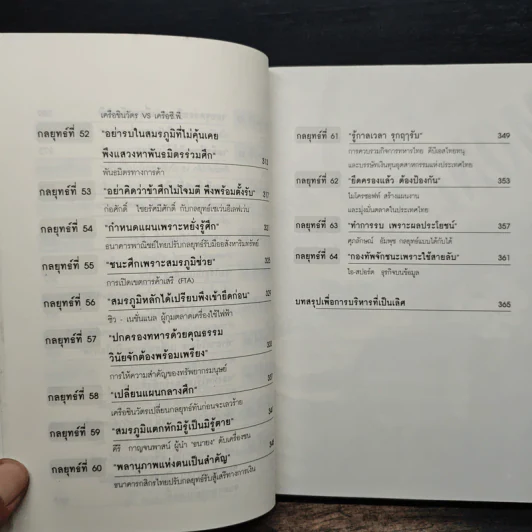 เครือชินวัตร VS เครือซี.พี.
กลยุทธ์ที่ 52 "อย่ารบในสมรภูมิที่ไม่คุ้นเคย
พึงแสวงหาพันธมิตรร่วมศึก"
พันธมิตรทางการค้า
กลยุทธ์ที่ 53 "อย่าคิดว่าข้าศึกไม่โจมตี พึงพร้อมตั้งรับ"
ก่อศักดิ์ ไชยรัศมีศักดิ์ กับกลยุทธ์เซเว่นอีเลฟเว่น
กลยุทธ์ที่ 54 "กำหนดแผนเพราะหยั่งรู้ศึก"
ธนาคารพาณิชย์ไทยปรับกลยุทธ์รับมืออสังหาริมทรัพย์
กลยุทธ์ที่ 55 "ชนะศึกเพราะสมรภูมิช่วย"
การเปิดเขตการค้าเสรี (FTA)
กลยุทธ์ที่ 56 "สมรภูมิหลักได้เปรียบพึงเข้ายึดก่อน"
ซิว - เนชั่นแนล ผู้กุมตลาดเครื่องใช้ไฟฟ้า
กลยุทธ์ที่ 57 "ปกครองทหารด้วยคุณธรรม
วินัยจักต้องพร้อมเพรียง"
การให้ความสำคัญของทรัพยากรมนุษย์
กลยุทธ์ที่ 58 "เปลี่ยนแผนกลางศึก"
เครือชินวัตรเปลี่ยนกลยุทธ์ทันก่อนจะเลวร้าย
กลยุทธ์ที่ 59 "สมรภูมิแตกหักมิรู้เป็นมิรู้ตาย"
คีรี กาญจนพาสน์ ผู้นำ "ธนายง" ดับเครื่องชน
กลยุทธ์ที่ 60 "พลานุภาพแห่งตนเป็นสำคัญ"
ธนาคารกสิกรไทยปรับกลยุทธ์รับสู้เสรีทางการเงิน
กลยุทธ์ที่ 61 "รู้กาลเวลา รุกฤๅรับ" 349
การควบรวมกิจการทหารไทย ดีบีเอสไทยทนุ
และบรรษัทเงินทุนอุตสาหกรรมแห่งประเทศไทย
กลยุทธ์ที่ 62 "ยึดครองแล้ว ต้องป้องกัน" 353
ไมโครซอฟท์ สร้างแผนงาน
และมุ่งมั่นตลาดในประเทศไทย
กลยุทธ์ที่ 63 "ทำการรบ เพราะผลประโยชน์" 357
ศุภลักษณ์ อัมพุช กลยุทธ์แบบได้กับได้
กลยุทธ์ที่ 64 "กองทัพจักชนะเพราะใช้สายลับ" 361
ไอ-สปอร์ต ธุรกิจบนข้อมูล
บทสรุปเพื่อการบริหารที่เป็นเลิศ 365